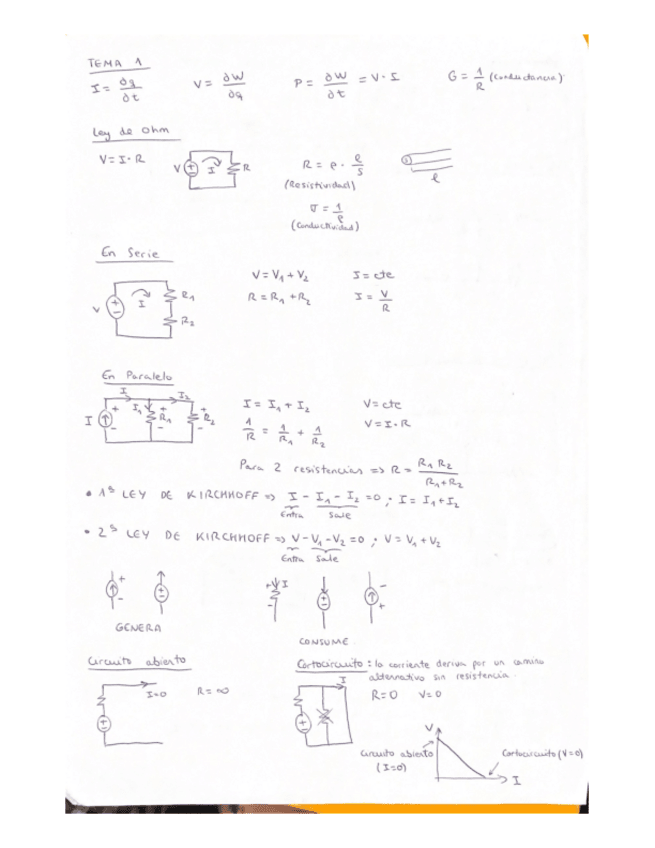 TEMA 1
I = ∂q/∂t V = ∂W/∂q P = ∂W/∂t = V · I G = 1/R (Conductancia)
Ley de Ohm
V = I · R V I R R = ρ · ℓ/S ℓ
(Resistividad)
σ = 1/ρ
(Conductividad)
En Serie
V = V1 + V2 I = cte
V I R1 R2 R = R1 + R2 I = V/R
En Paralelo
I I1 I2 R1 R2 I = I1 + I2 V = cte
1/R = 1/R1 + 1/R2 V = I · R
Para 2 resistencias => R = R1 R2/R1 + R2
• 1ª LEY DE KIRCHHOFF => I - I1 - I2 = 0 ; I = I1 + I2
Entra Sale
• 2ª LEY DE KIRCHHOFF => V - V1 - V2 = 0 ; V = V1 + V2
Entra Sale
+ - + I - - +
GENERA
CONSUME
Circuito abierto Cortocircuito : la corriente deriva por un camino
alternativo sin resistencia.
I=0 R = ∞ I R=0 V=0
V
Circuito abierto Cortocircuito (V=0)
(I=0) I